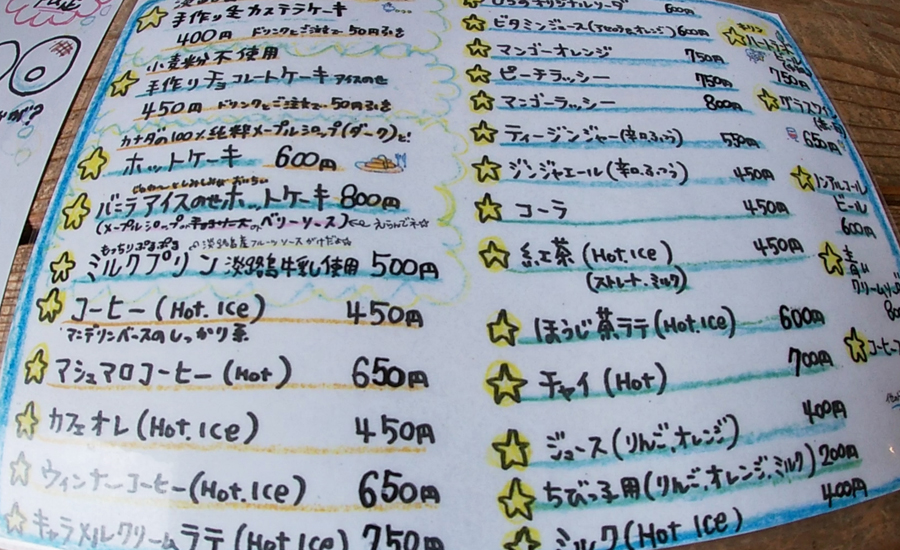 手作り生カステラケーキ
400円 ドリンクとご注文で50円引き
小麦粉不使用
手作りチョコレートケーキ アイスのせ
450円 ドリンクとご注文で50円引き
カナダの100%純粋メープルシロップ(ダーク)と!
ホットケーキ 600円
バニラアイスのせホットケーキ 800円
もっちりぷるぷる
ミルクプリン 淡路島牛乳使用 500円
コーヒー(Hot.Ice) 450円
マンデリンベースのしっかり系
マシュマロコーヒー(Hot) 650円
カフェオレ(Hot.Ice) 450円
ウィンナーコーヒー(Hot.Ice) 650円
キャラメルクリームラテ(Hot.Ice) 750円
600円
ビタミンジュース 600円
マンゴーオレンジ 750円
ピーチラッシー 750円
マンゴーラッシー 800円
ティージンジャー(辛口.ふつう) 550円
ジンジャエール(辛口.ふつう) 450円
コーラ 450円
紅茶(Hot.Ice) 450円
(ストレート.ミルク)
ほうじ茶ラテ(Hot.Ice) 600円
チャイ(Hot) 700円
ジュース(りんご.オレンジ) 400円
ちびっ子用(りんご.オレンジ.ミルク) 200円
ミルク(Hot Ice) 400円
キリン
ハートランド
ビール
750円
グラスワイン
650円
ノンアルコール
ビール
600円
青い
クリームソーダ
コーヒー